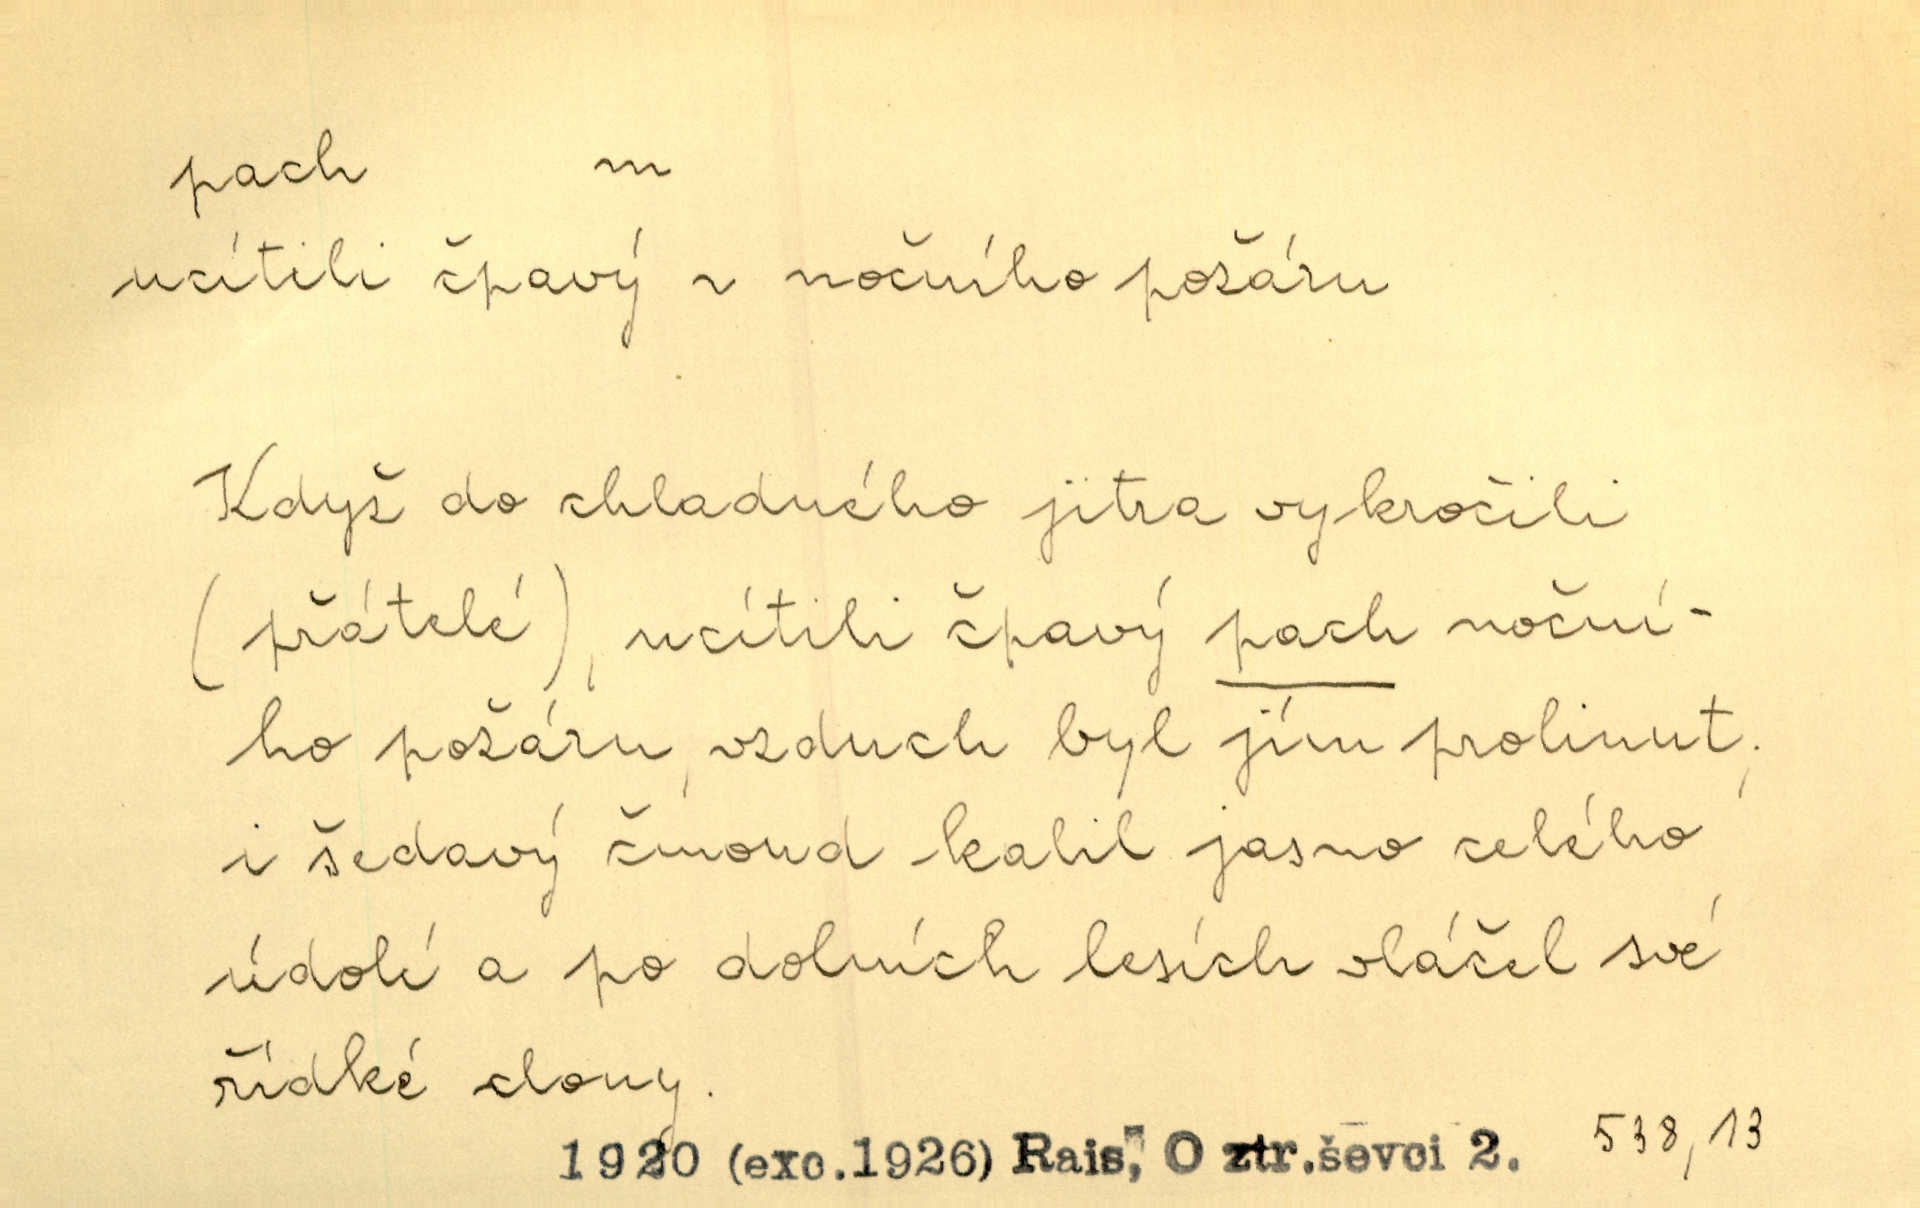 pach m
ucítili čpavý ~ nočního požáru
Když do chladného jitra vykročili
(přátelé), ucítili čpavý pach noční-
ho požáru, vzduch byl jím prolinut;
i šedavý čmoud kalil jasno celého
údolí a po dolních lesích vláčel své
řídké clony.
1920 (exc.1926) Rais, O ztr.ševci 2. 538,13